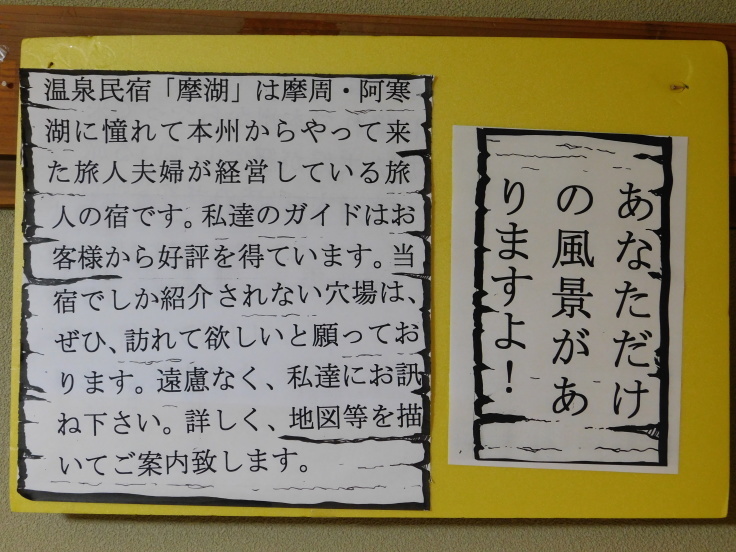 温泉民宿「摩湖」は摩周・阿寒
湖に憧れて本州からやって来
た旅人夫婦が経営している旅
人の宿です。私達のガイドはお
客様から好評を得ています。当
宿でしか紹介されない穴場は、
ぜひ、訪れて欲しいと願ってお
ります。遠慮なく、私達にお訊
ね下さい。詳しく、地図等を描
いてご案内致します。
あなただけ
の風景があ
りますよ！